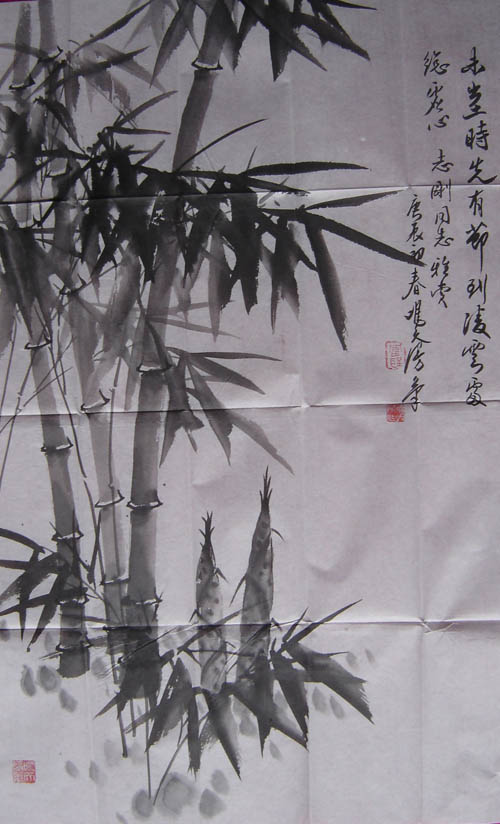 未出土時先有節到凌雲處
總虛心 志剛同志雅賞
庚辰初春